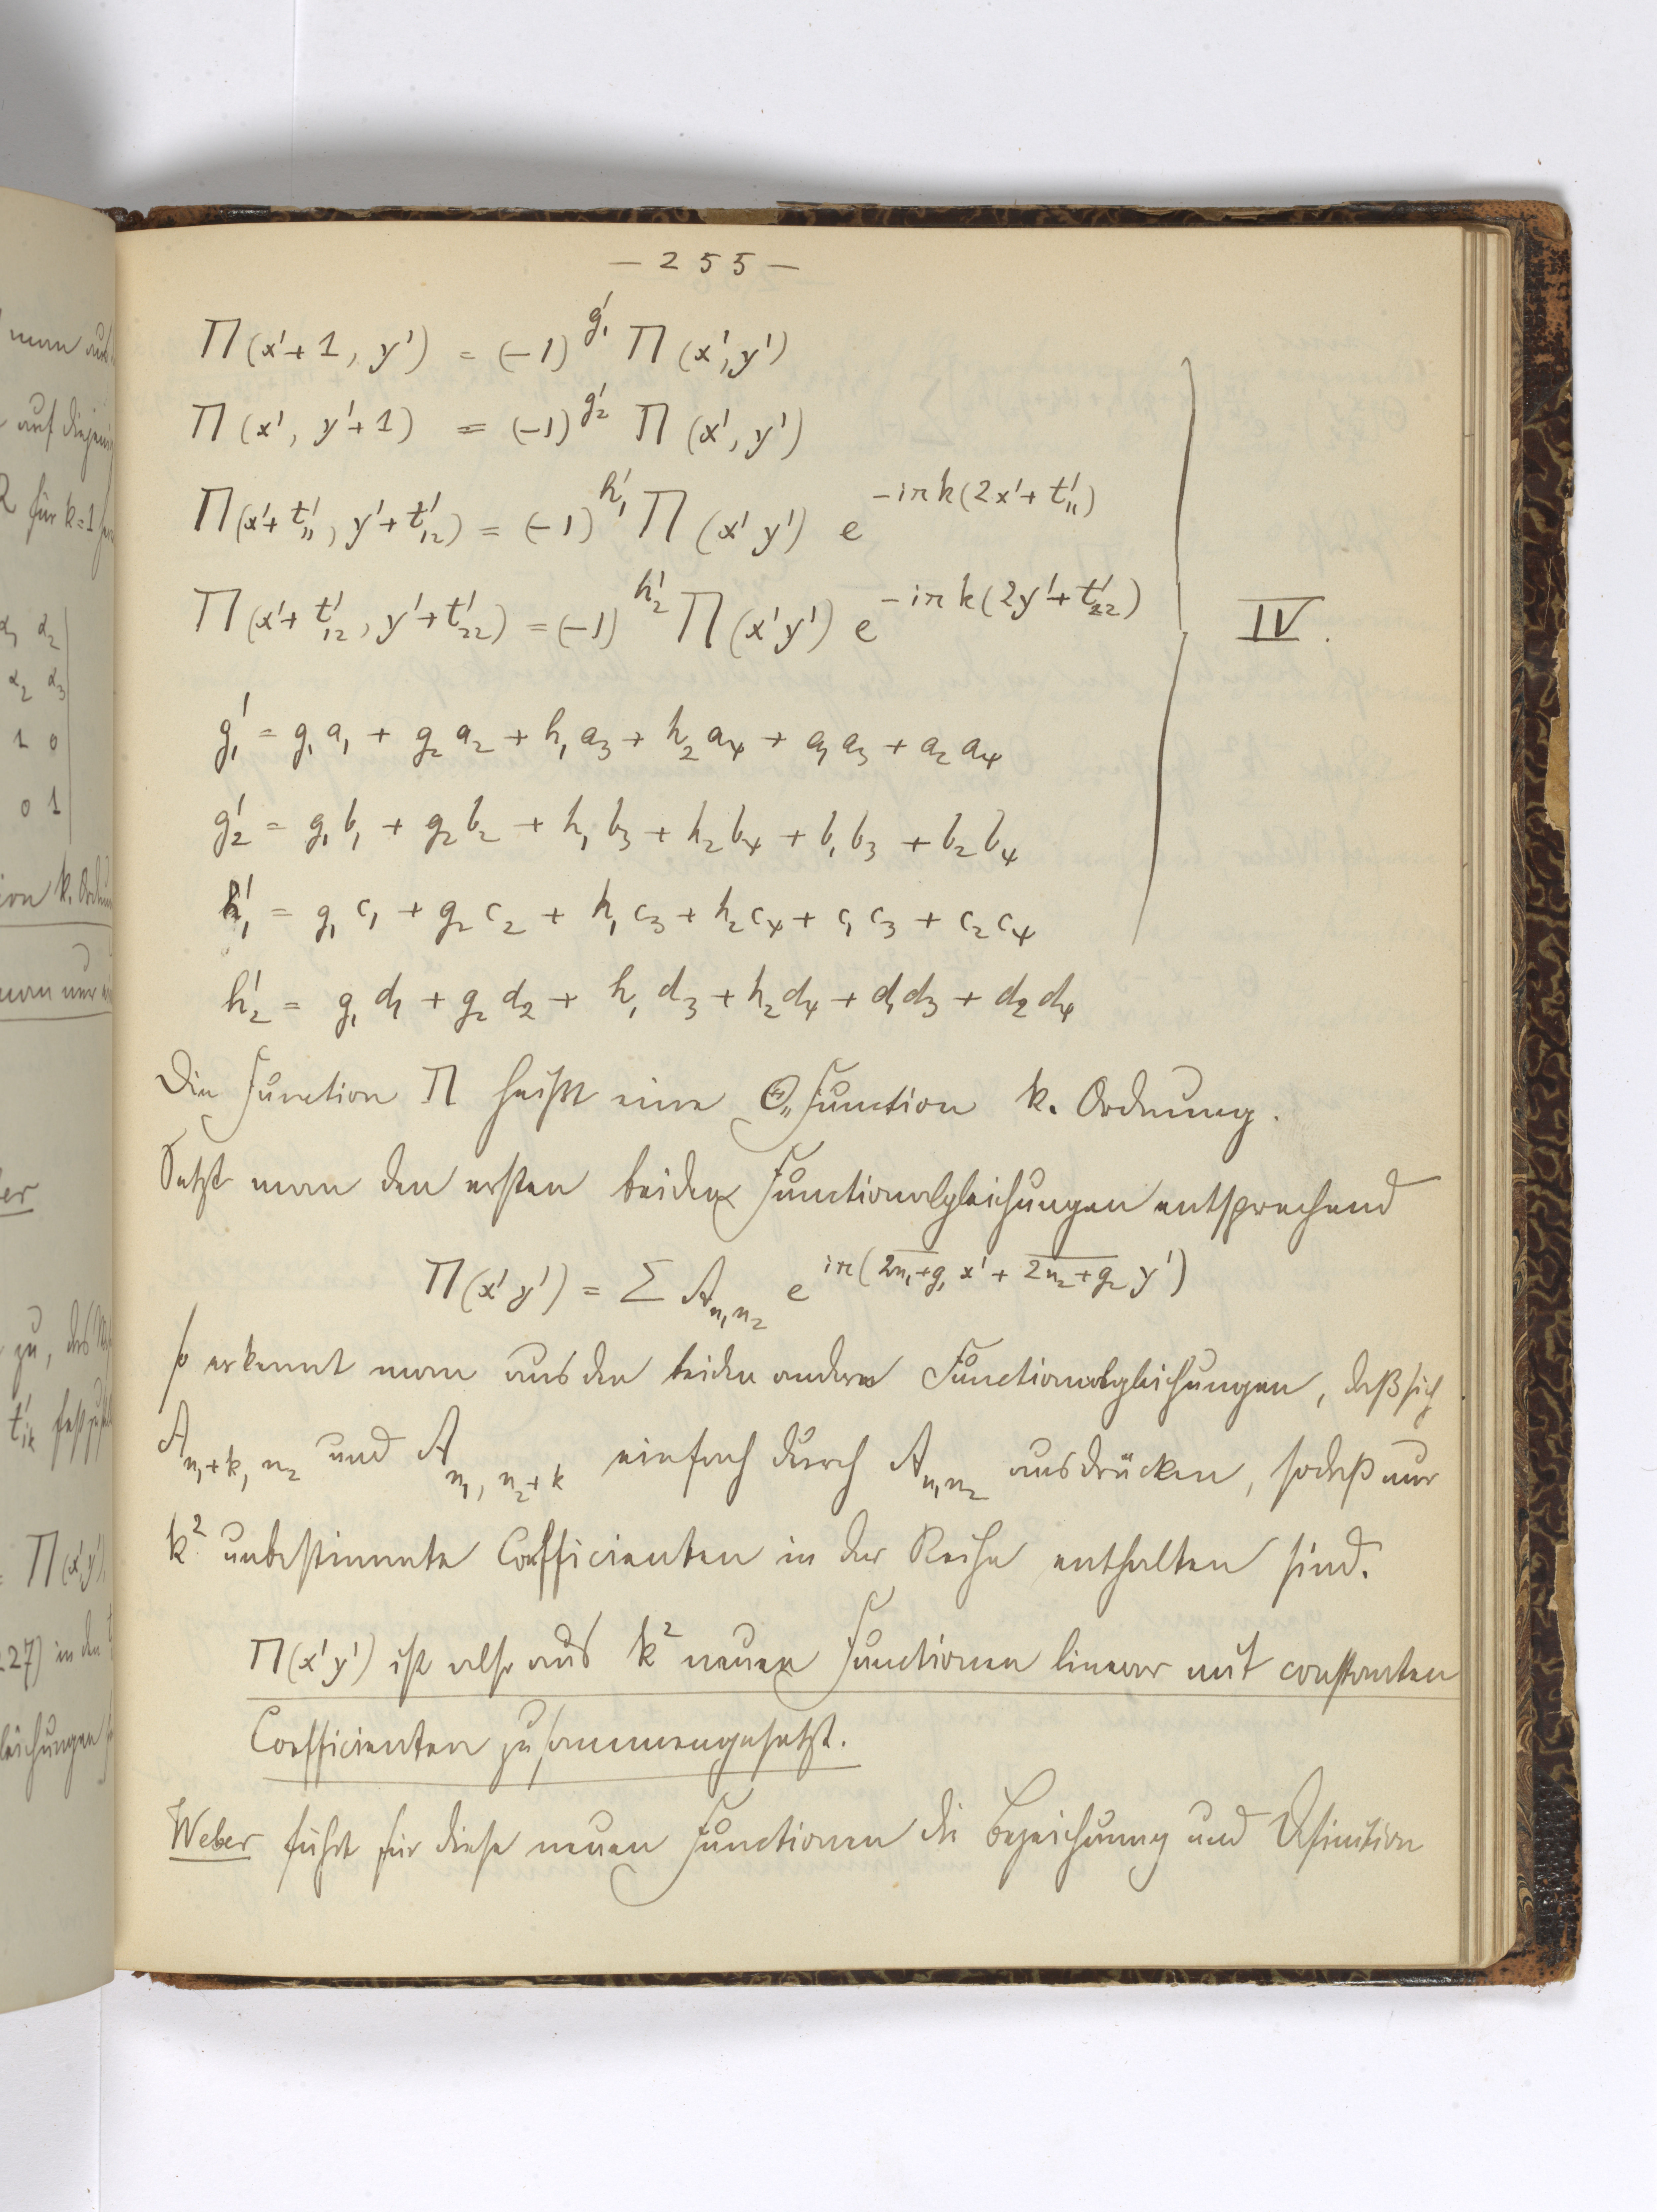 — 255 —
Π(x'+1, y') = (-1)^{g_1'} Π(x', y')
Π(x', y'+1) = (-1)^{g_2'} Π(x', y')
Π(x'+t'_{11}, y'+t'_{12}) = (-1)^{h_1'} Π(x' y') e^{-iπk(2x'+t'_{11})}
Π(x'+t'_{12}, y'+t'_{22}) = (-1)^{h_2'} Π(x' y') e^{-iπk(2y'+t'_{22})}
IV.
g_1' = g_1 a_1 + g_2 a_2 + h_1 a_3 + h_2 a_4 + a_1 a_3 + a_2 a_4
g_2' = g_1 b_1 + g_2 b_2 + h_1 b_3 + h_2 b_4 + b_1 b_3 + b_2 b_4
h_1' = g_1 c_1 + g_2 c_2 + h_1 c_3 + h_2 c_4 + c_1 c_3 + c_2 c_4
h_2' = g_1 d_1 + g_2 d_2 + h_1 d_3 + h_2 d_4 + d_1 d_3 + d_2 d_4
Die Function Π heißt eine Θ„Function k. Ordnung.
Setzt man den ersten beiden Functionalgleichungen entsprechend
Π(x' y') = Σ A_{n_1 n_2} e^{iπ(\overline{2n_1+g_1} x' + \overline{2n_2+g_2} y')}
so erkennt man aus den beiden andern Functionalgleichungen, daß sich
A_{n_1+k, n_2} und A_{n_1, n_2+k} einfach durch A_{n_1 n_2} ausdrücken, sodaß nur
k² unbestimmte Coefficienten in der Reihe enthalten sind.
Π(x' y') ist also aus k² neuen Functionen linear mit constanten
Coefficienten zusammengesetzt.
Weber führt für diese neuen Functionen die Bezeichnung und Definition